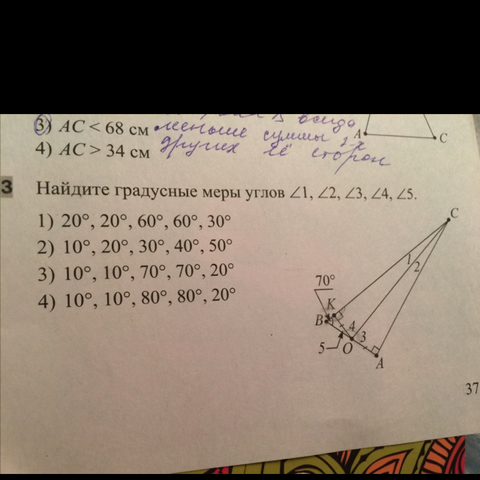 всегда
3) AC < 68 см меньше суммы 2-х
4) AC > 34 см других её сторон
A C
3 Найдите градусные меры углов ∠1, ∠2, ∠3, ∠4, ∠5.
1) 20°, 20°, 60°, 60°, 30°
2) 10°, 20°, 30°, 40°, 50°
3) 10°, 10°, 70°, 70°, 20°
4) 10°, 10°, 80°, 80°, 20°
C
1 2
70°
K
B 4 3
5 O A
37